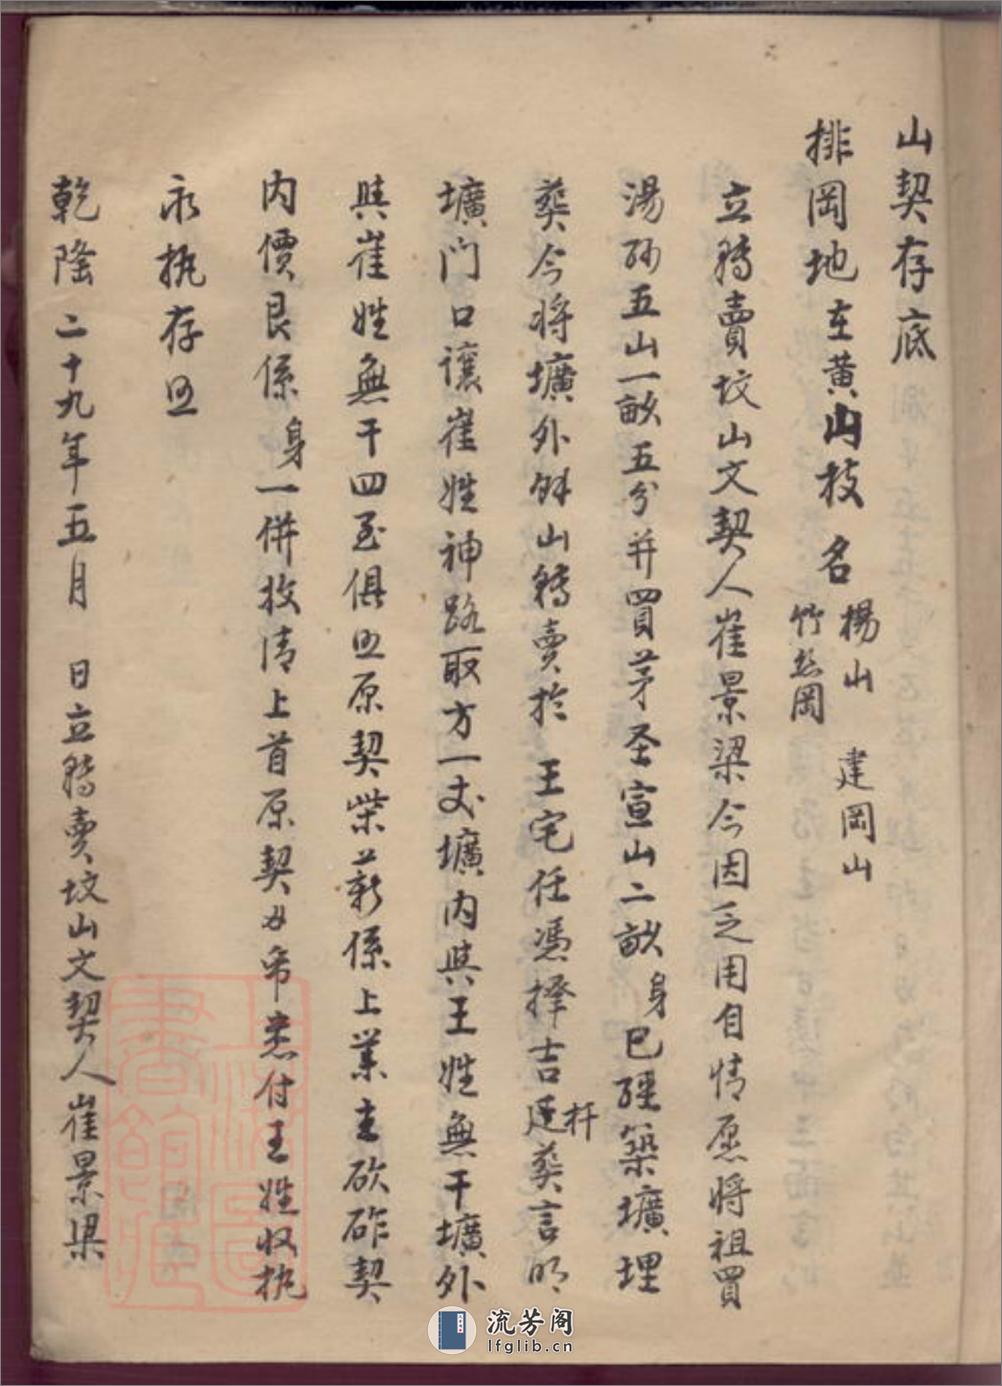 山契存底
排岡地在黄山枝名 楊山 建岡山
竹丝岡
立轉賣坟山文契人崔景梁今因乏用自情愿將祖買
湯孙五山一畝五分并買茅圣宣山二畝身已經築壙埋
葬今将壙外餘山轉賣於王宅任憑擇吉迁扦葬言明
壙门口讓崔姓神路取方一丈壙内與王姓無干壙外
與崔姓無干四至俱照原契柴薪係上業主砍矺契
内價艮係身一併收清上首原契 悉付王姓收执
永执存照
乾隆二十九年五月 日立轉賣坟山文契人崔景梁
上海圖書館藏
流芳阁
lfglib.cn